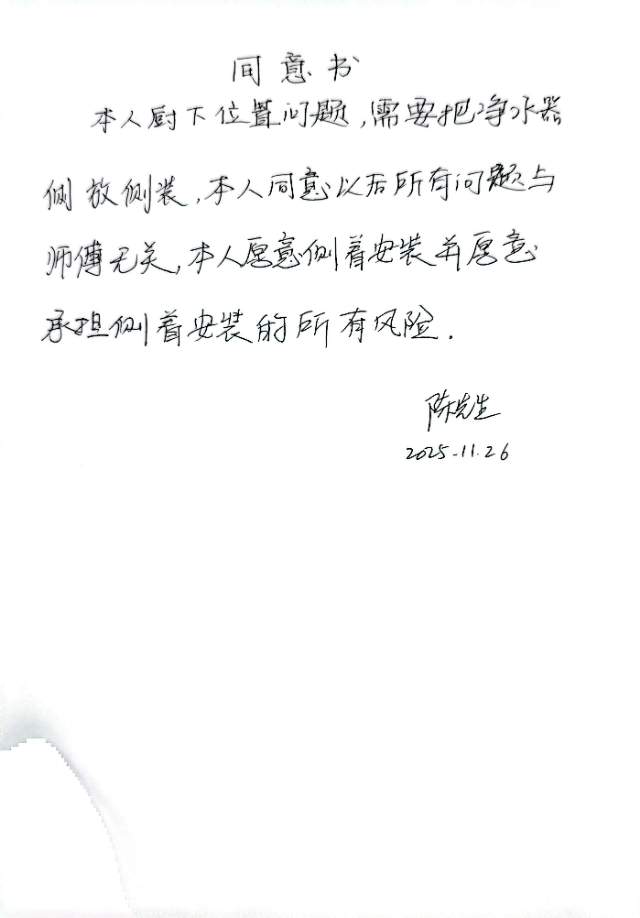 同意书
本人厨下位置问题,需要把净水器
侧放侧装,本人同意以后所有问题与
师傅无关,本人愿意侧着安装并愿意
承担侧着安装的所有风险.
陈先生
2025.11.26